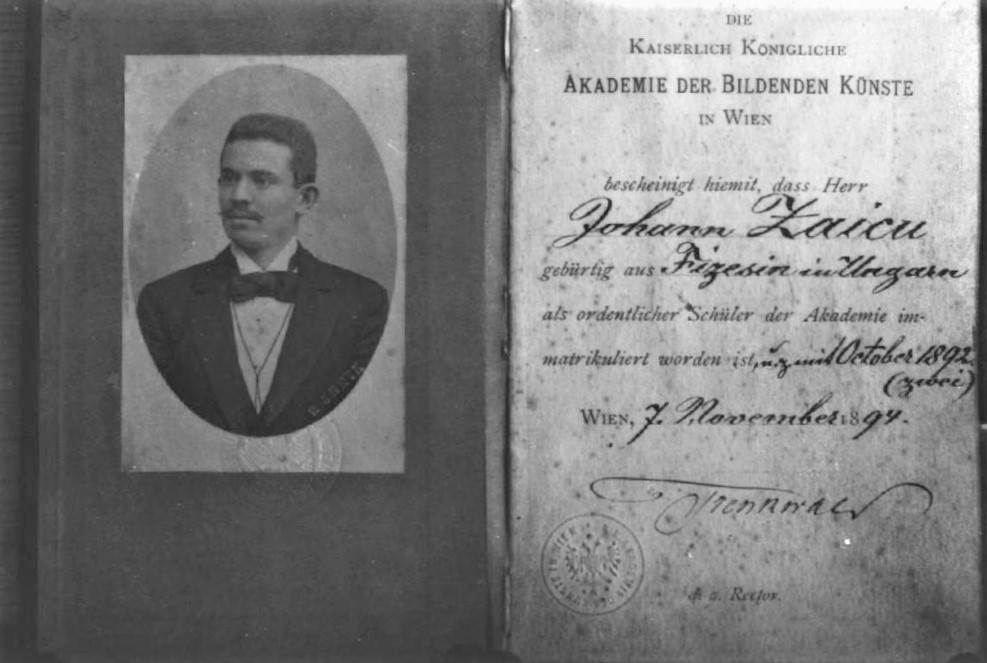 DIE
KAISERLICH KÖNIGLICHE
AKADEMIE DER BILDENDEN KÜNSTE
IN WIEN
bescheinigt hiemit, dass Herr
Johann Zaicu
gebürtig aus Fizesin in Ungarn
als ordentlicher Schüler der Akademie im-
matrikuliert worden ist, u. z. mit October 1892
(zwei)
WIEN, 7. November 1894.
Trenkwald
d. z. Rector.